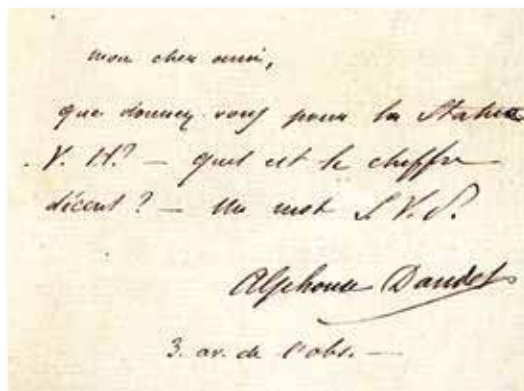 mon cher ami,
que donnez vous pour la Statue
V. H.? — quel est le chiffre
décent? — Un mot S. V. P.
Alphonse Daudet
3. av. de l'obs. —